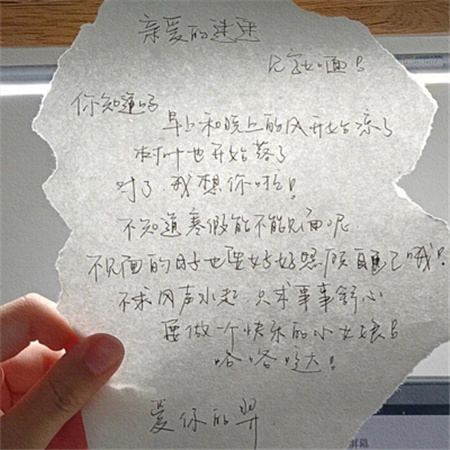 亲爱的迷迷
见字如面!
你知道吗
早上和晚上的风开始凉了
树叶也开始落了
对了 我想你啦!
不知道寒假能不能见面呢
不见面的日子也要好好照顾自己哦!
不求风声水起 只求事事舒心
要做一个快乐的小女孩!
哈哈哒!
爱你的羿